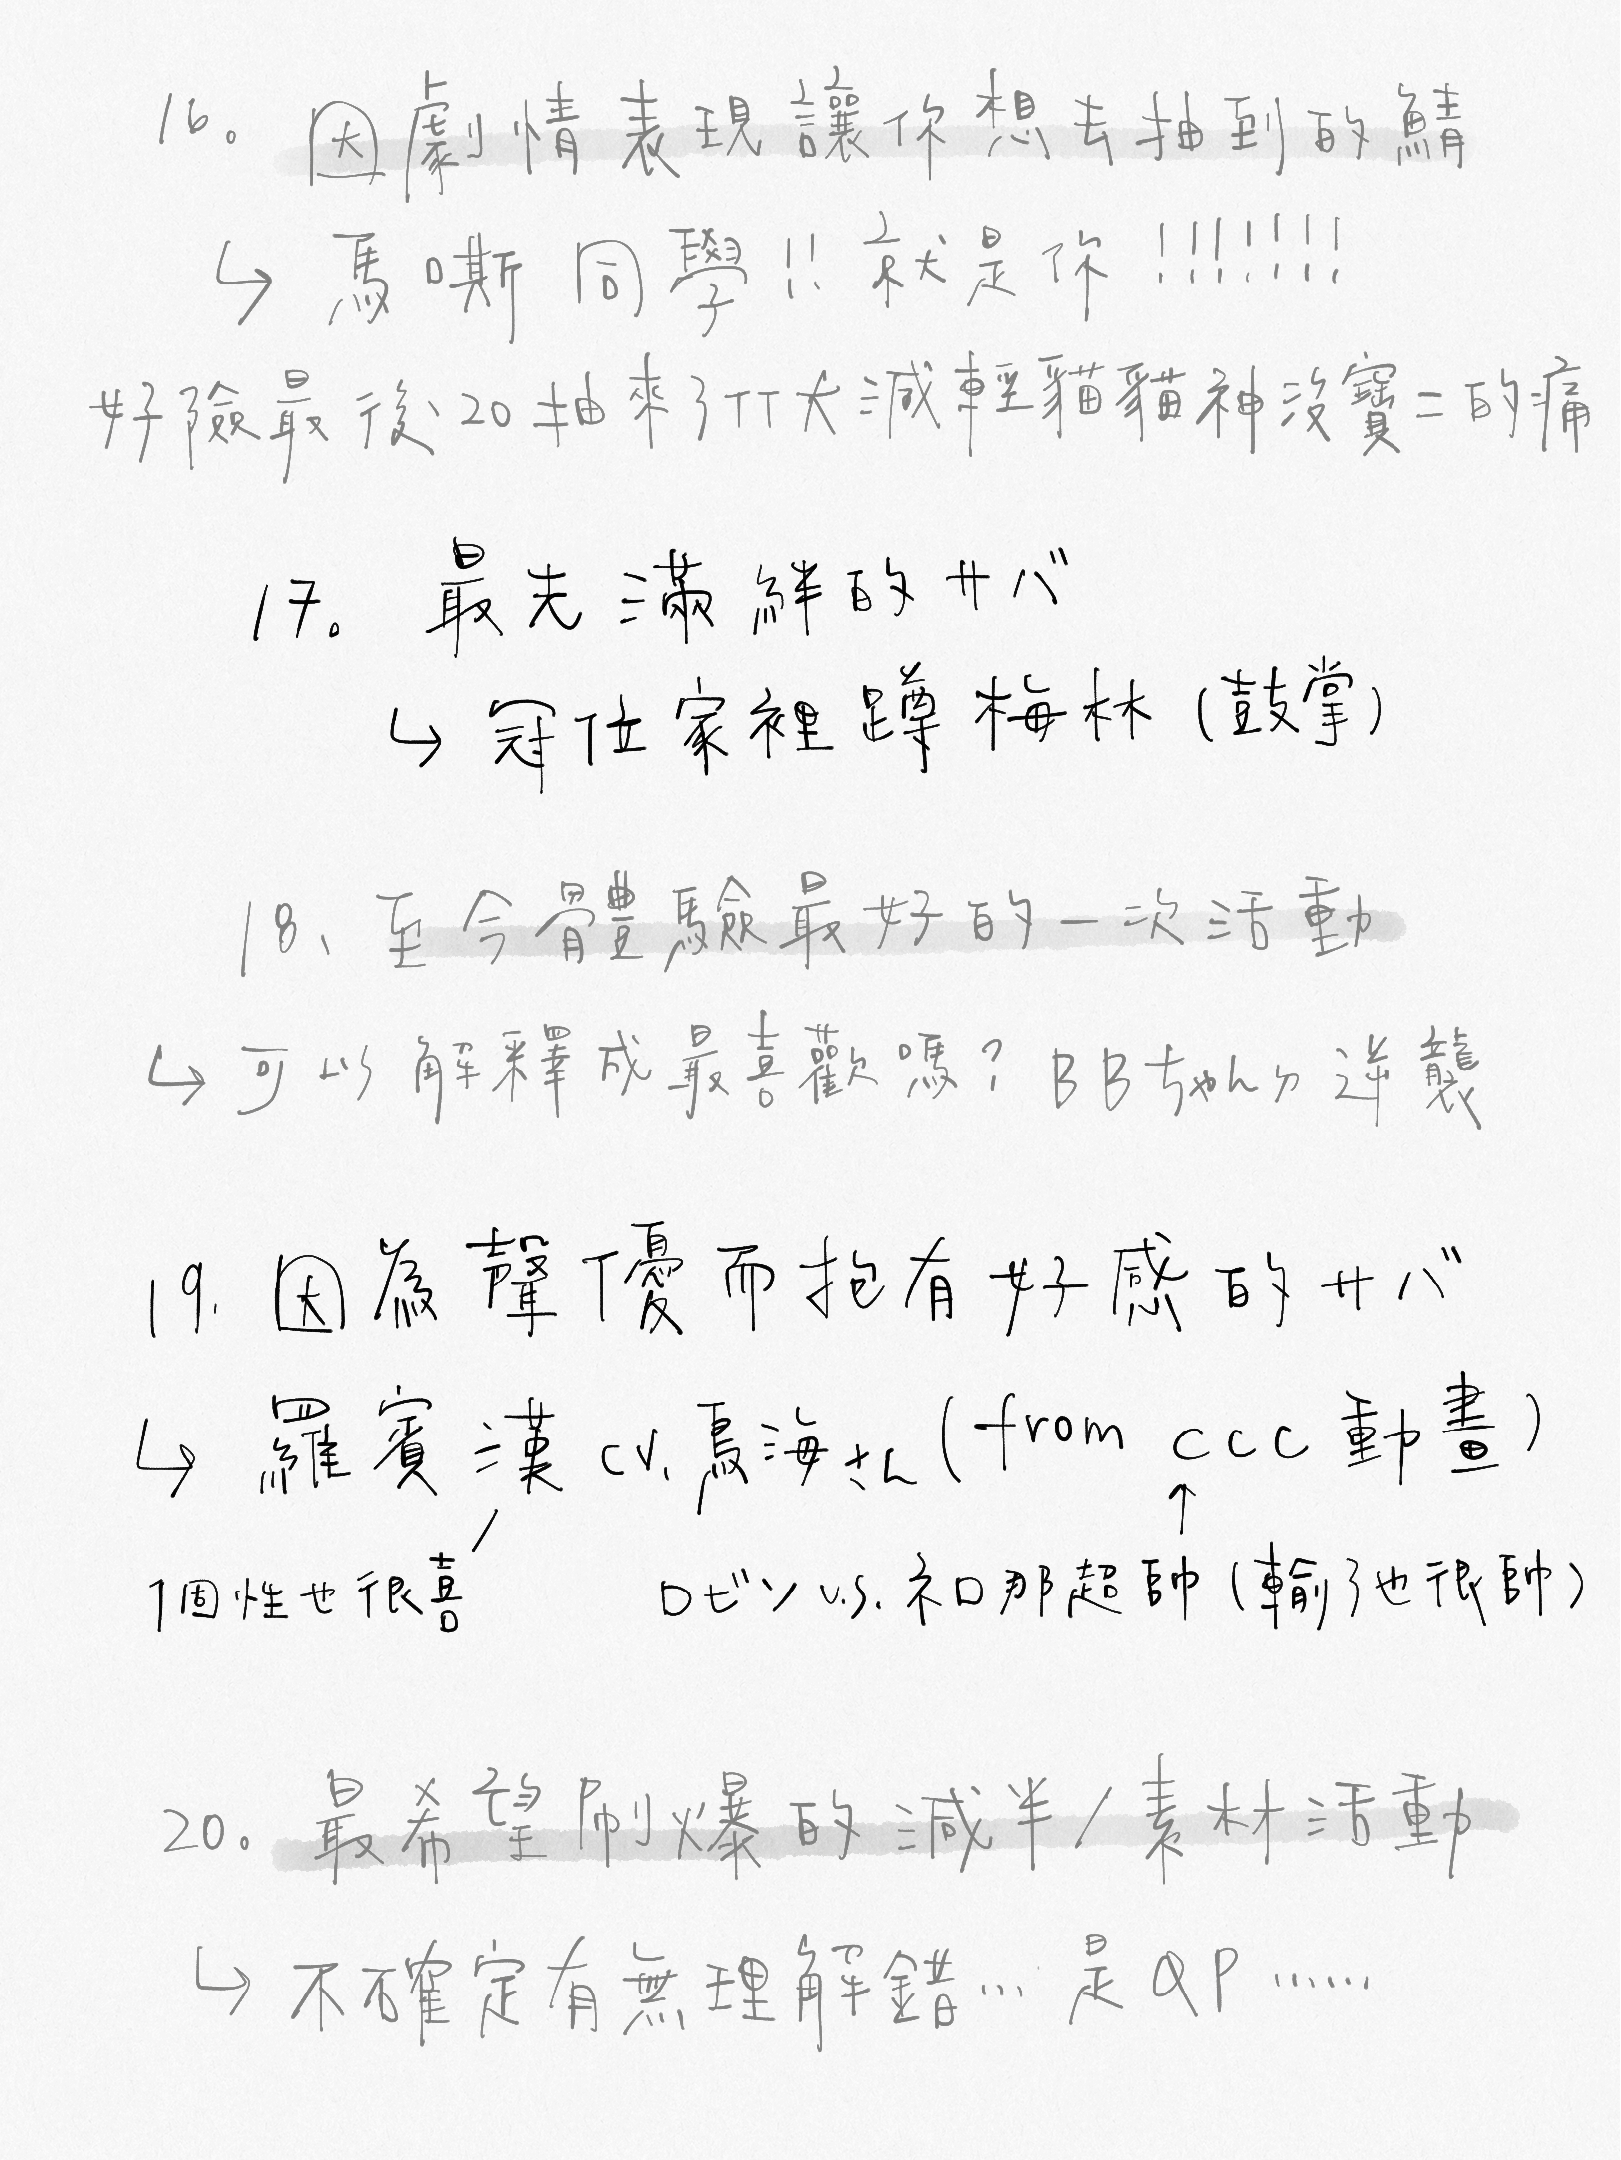 16。因劇情表現讓你想去抽到的鯖
↳ 馬嘶同學!!就是你!!!!!!!
好險最後20抽來了TT大減輕貓貓神沒寶二的痛
17。最先滿絆的サバ
↳ 冠位家裡蹲梅林(鼓掌)
18、至今體驗最好的一次活動
↳ 可以解釋成最喜歡嗎?BBちゃんの逆襲
19. 因為聲優而抱有好感的サバ
↳ 羅賓漢 cv.鳥海さん(from ccc動畫)
個性也很喜
ロビン v.s. ネロ那超帥(輸了也很帥)
20。最希望刷爆的減半/素材活動
↳ 不確定有無理解錯…是QP……